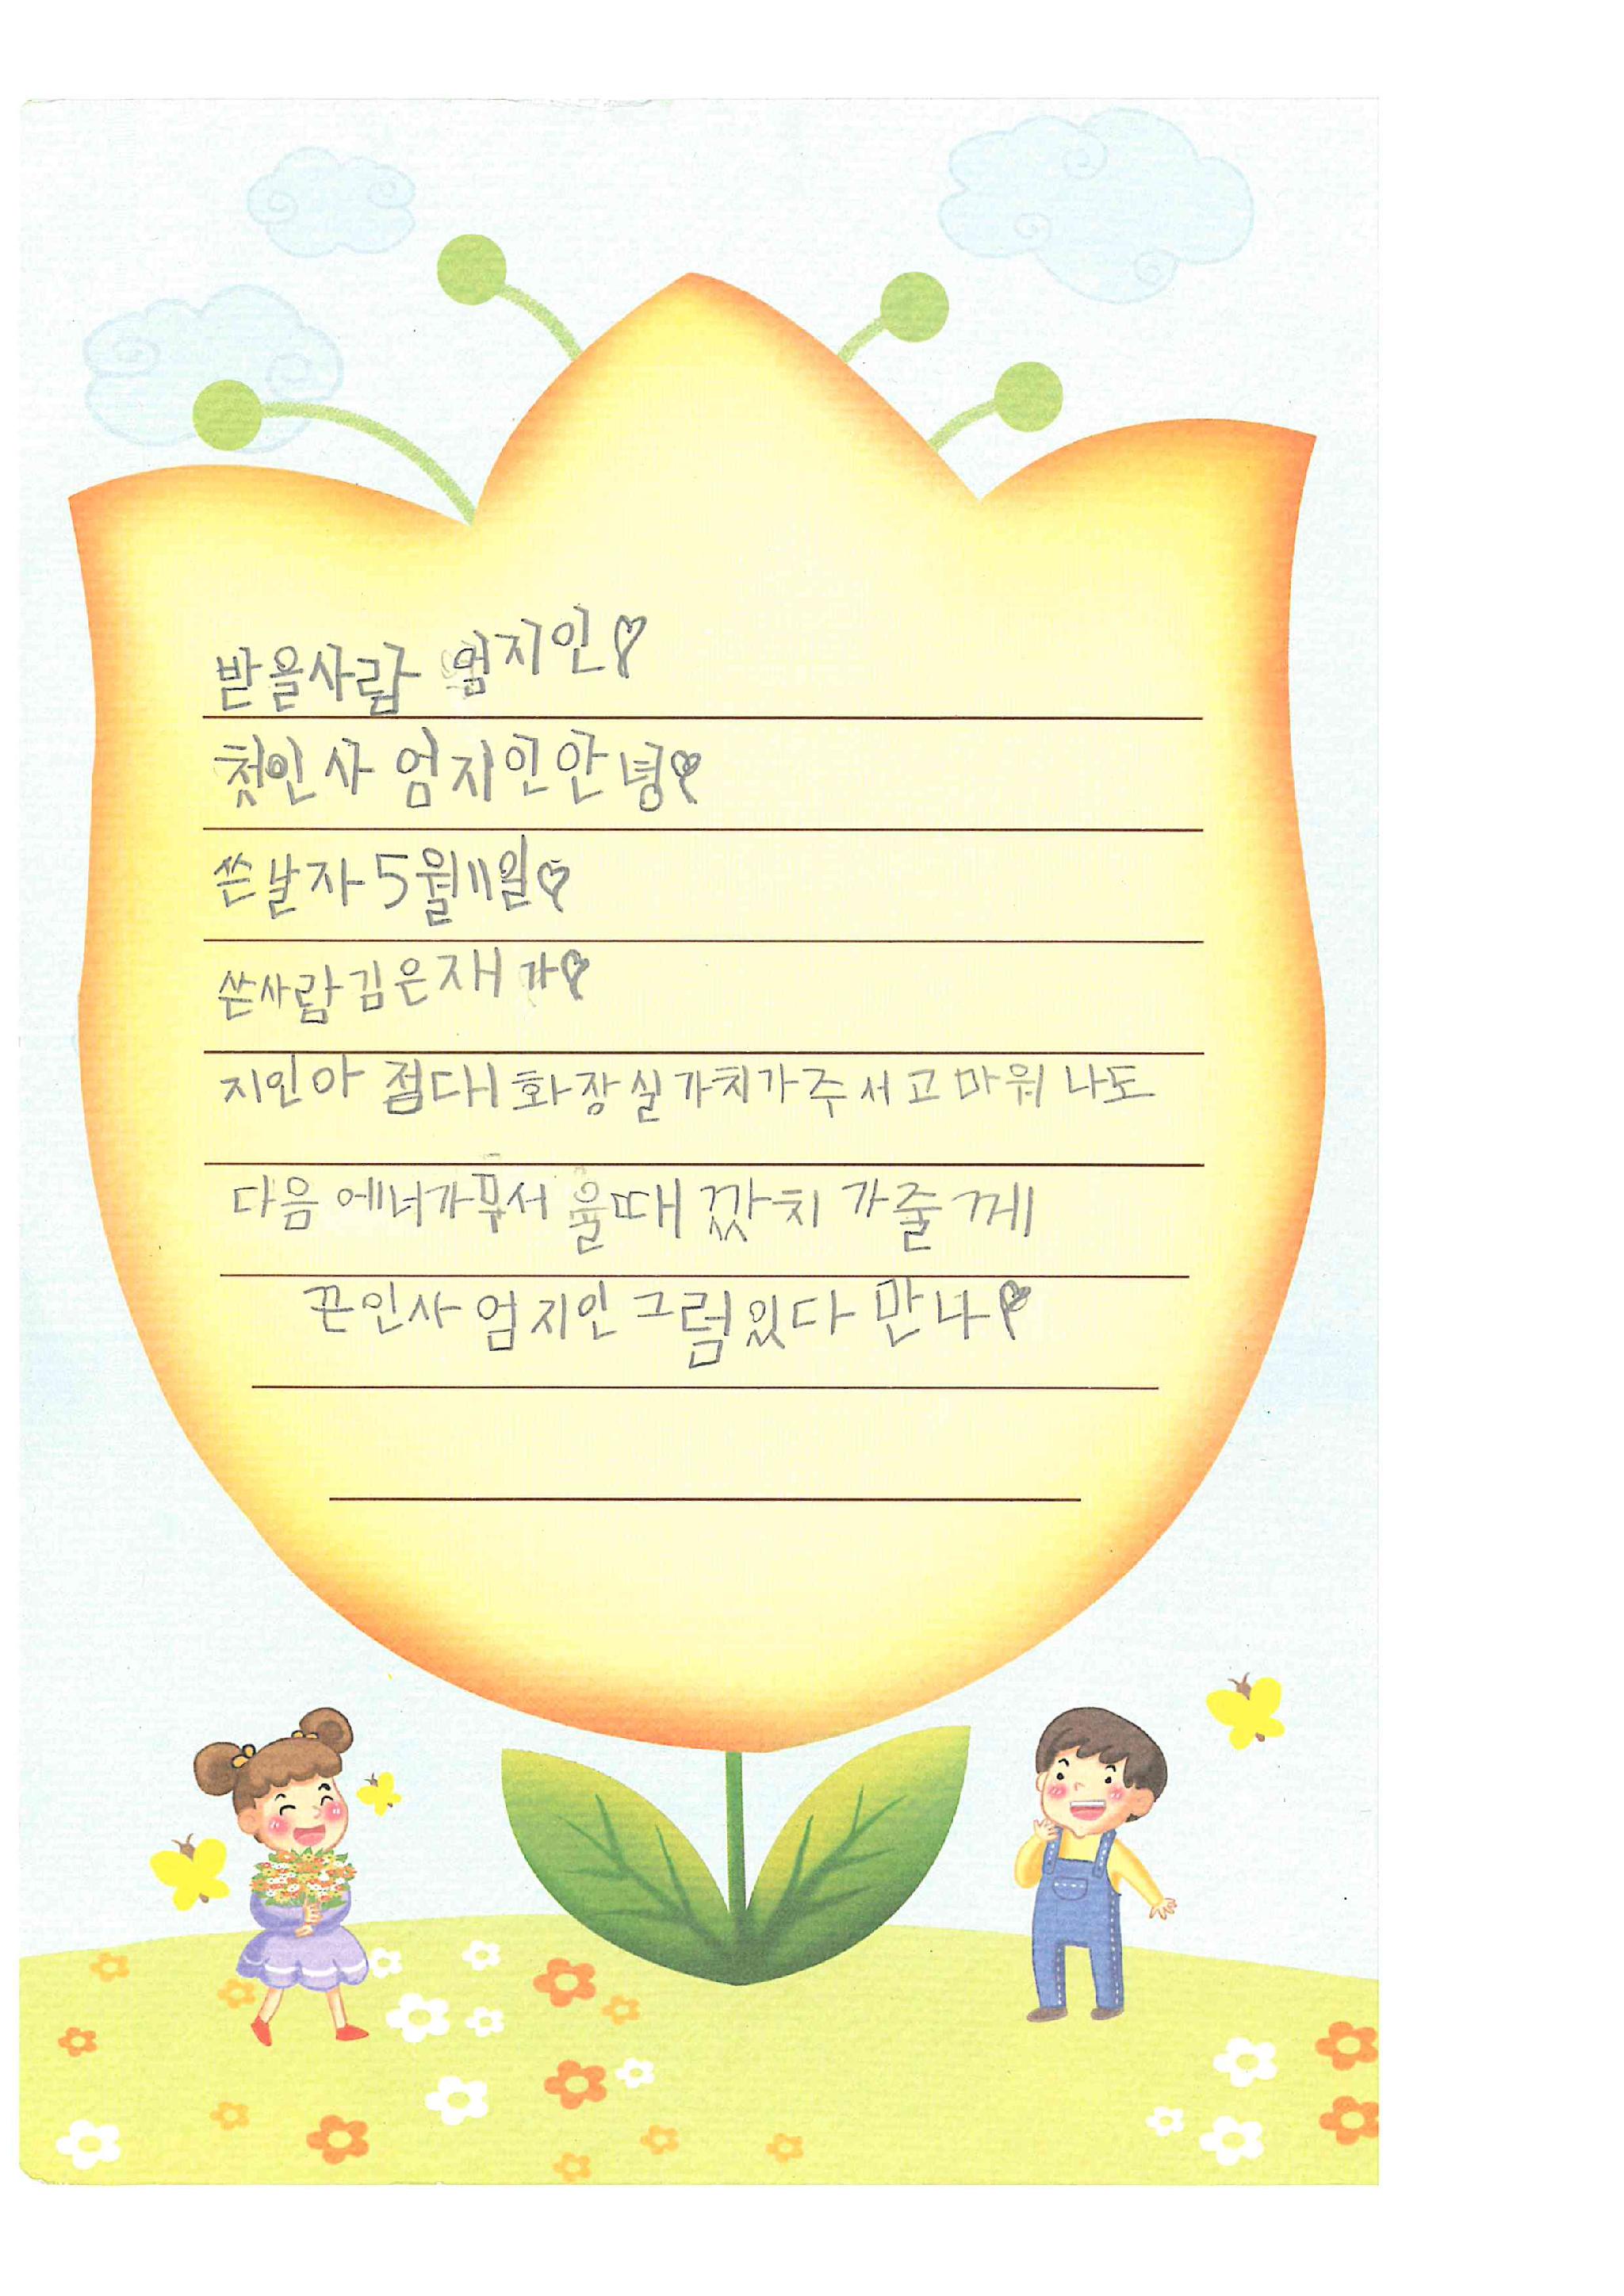 받을사람 엄지인♡
첫인사 엄지인안녕♡
쓴날자5월11일♡
쓴사람김은재가♡
지인아 점대화장실가치가주서고마워 나도
다음에너가무서울때 깠치 가줄께
끈인사 엄지인그럼있다 만나♡